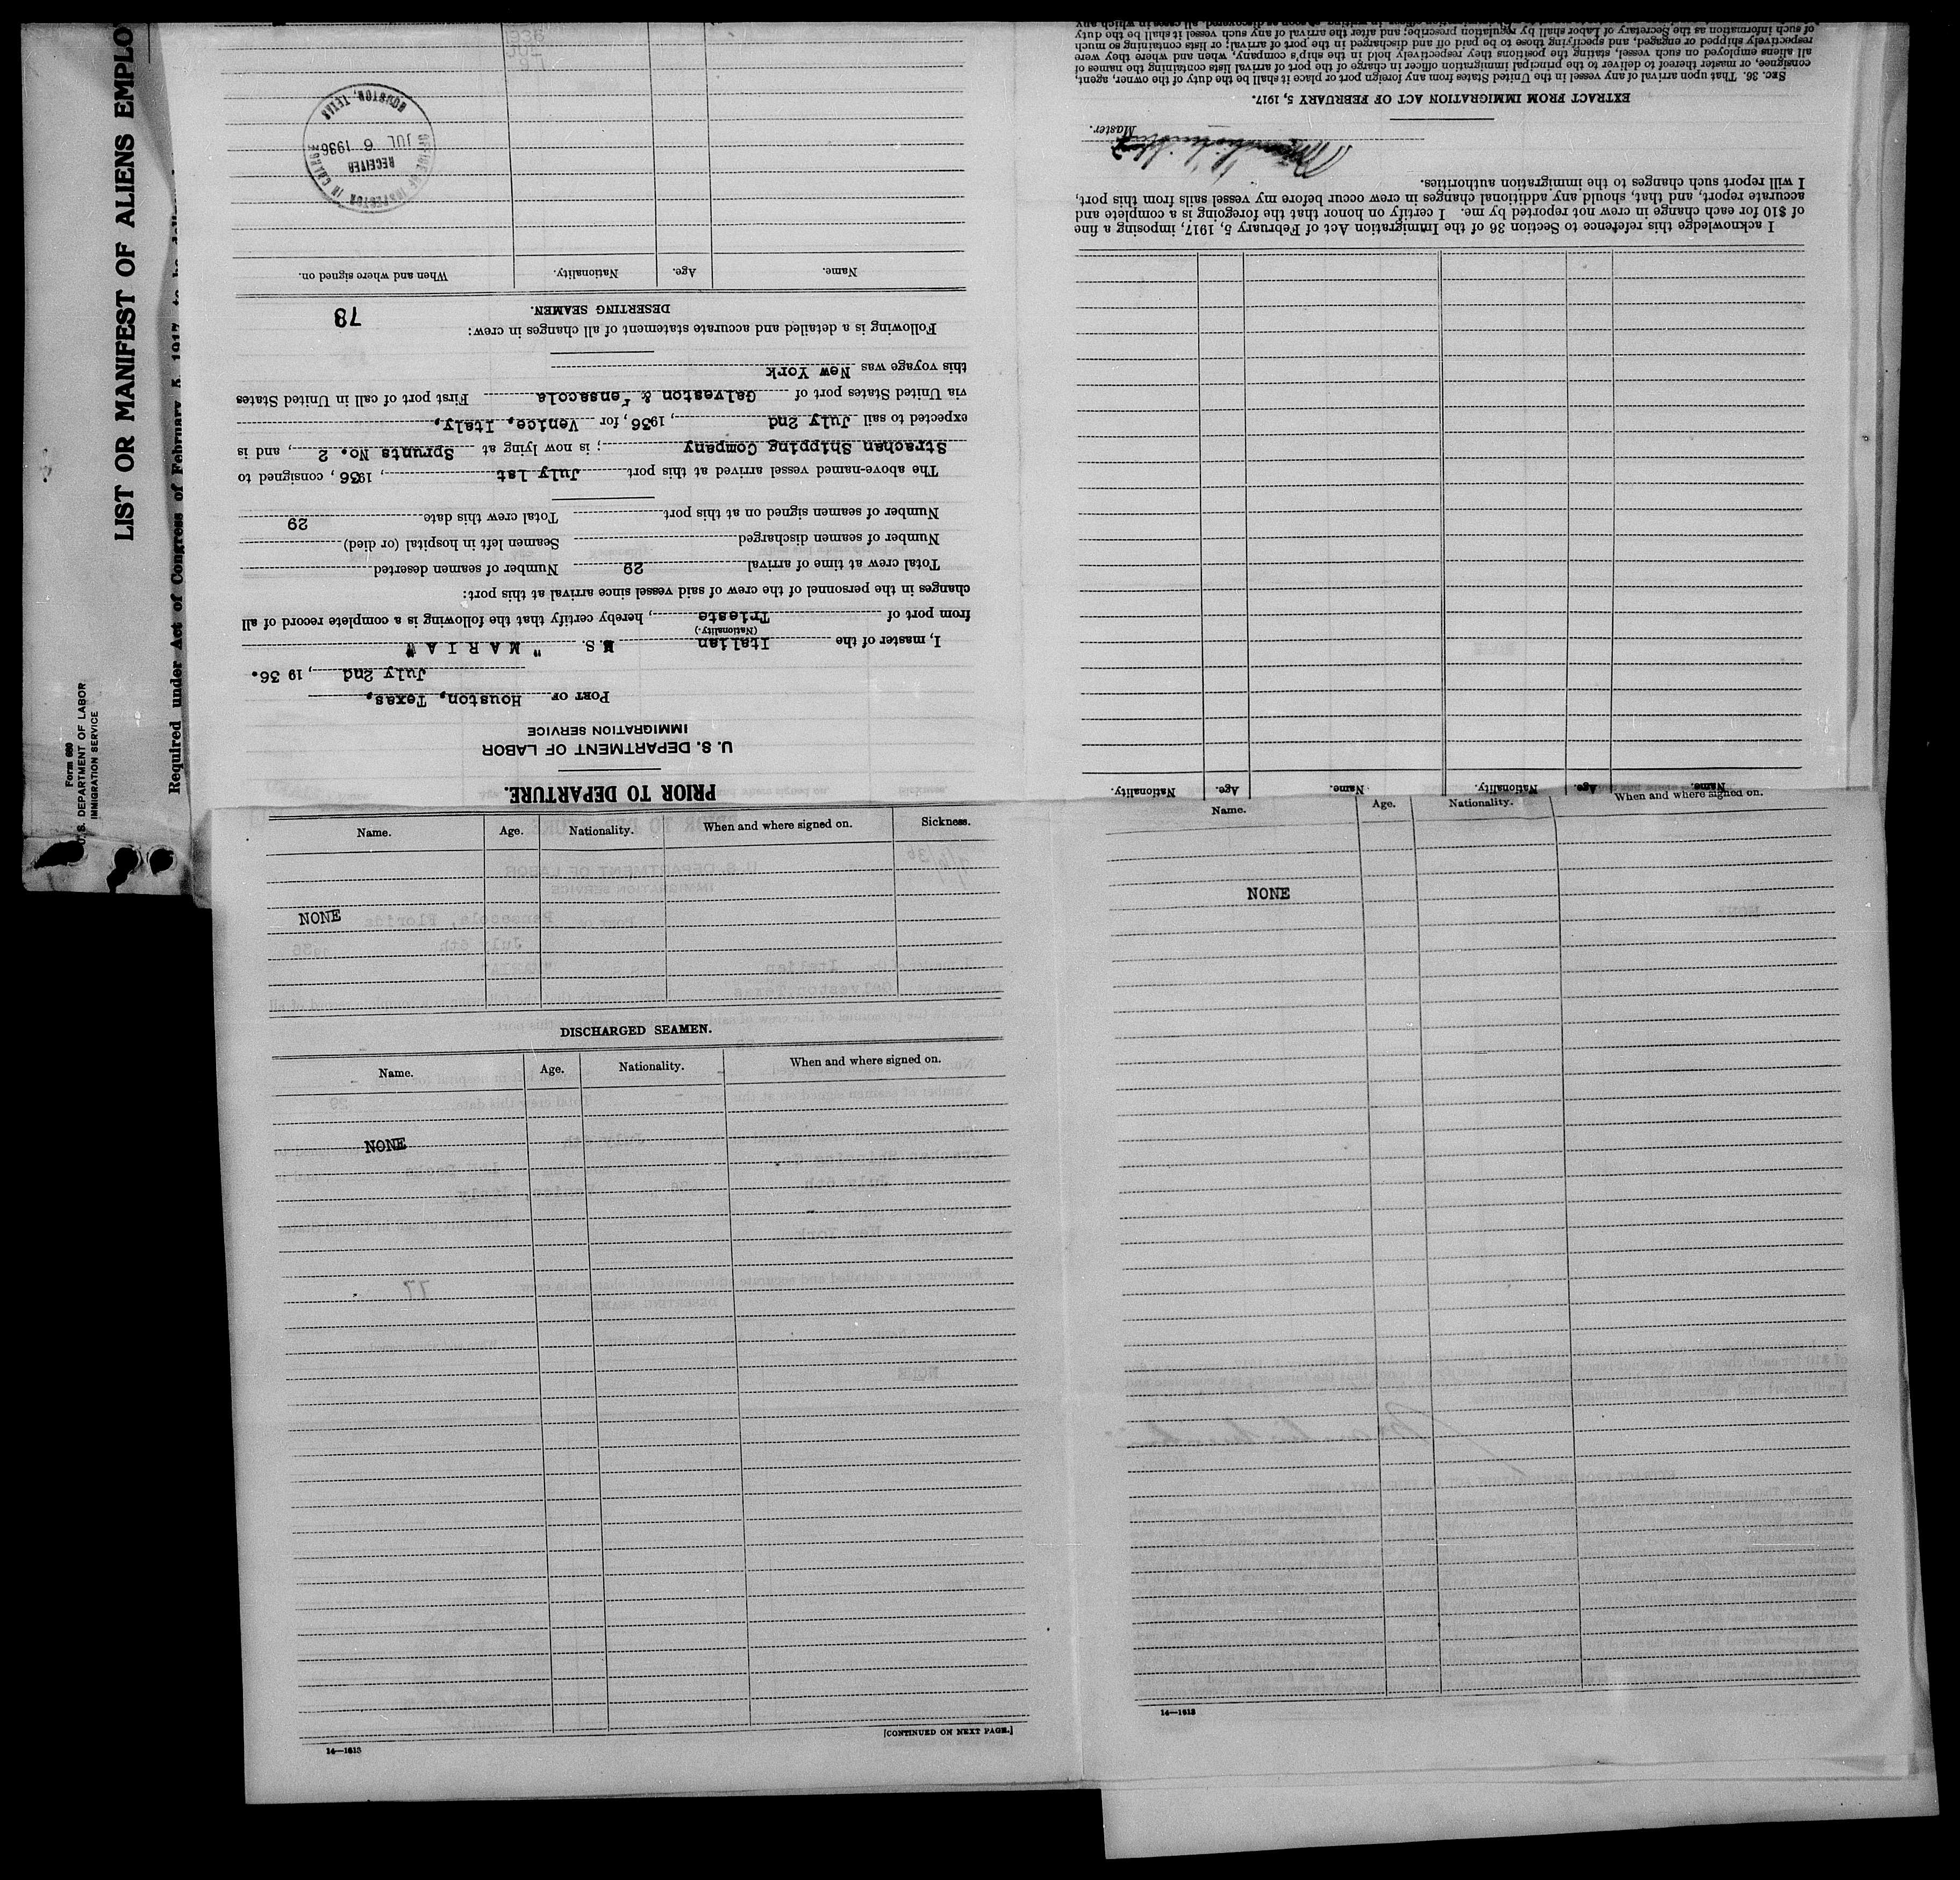 Form 680
U. S. DEPARTMENT OF LABOR
IMMIGRATION SERVICE
LIST OR MANIFEST OF ALIENS EMPLO
Required under Act of Congress of February 5, 1917, to be
PRIOR TO DEPARTURE.
U. S. DEPARTMENT OF LABOR
IMMIGRATION SERVICE
PORT OF Houston, Texas,
July 2nd, 1936.
I, master of the Italian M.S. "MARIA"
(Nationality.)
from port of Trieste, hereby certify that the following is a complete record of all
changes in the personnel of the crew of said vessel since arrival at this port:
Total crew at time of arrival 29 Number of seamen deserted
Number of seamen discharged Seamen left in hospital (or died)
Number of seamen signed on at this port Total crew this date 29
The above-named vessel arrived at this port July 1st, 1936, consigned to
Strachan Shipping Company; is now lying at Sprunts No. 2, and is
expected to sail July 2nd, 1936, for Venice, Italy,
via United States port of Galveston & Pensacola First port of call in United States
this voyage was New York
Following is a detailed and accurate statement of all changes in crew:
DESERTING SEAMEN.
78
Name. Age. Nationality. When and where signed on.
OFFICE OF INSPECTOR IN CHARGE
RECEIVED
JUL 6 1936
HOUSTON, TEXAS
Name. Age. Nationality. Name. Age. Nationality.
I acknowledge this reference to Section 36 of the Immigration Act of February 5, 1917, imposing a fine
of $10 for each change in crew not reported by me. I certify on honor that the foregoing is a complete and
accurate report, and that, should any additional changes in crew occur before my vessel sails from this port,
I will report such changes to the immigration authorities.
Master.
EXTRACT FROM IMMIGRATION ACT OF FEBRUARY 5, 1917.
SEC. 36. That upon arrival of any vessel in the United States from any foreign port or place it shall be the duty of the owner, agent,
consignee, or master thereof to deliver to the principal immigration officer in charge of the port of arrival lists containing the names of
all aliens employed on such vessel, stating the positions they respectively hold in the ship's company, when and where they were
respectively shipped or engaged, and specifying those to be paid off and discharged in the port of arrival; or lists containing so much
of such information as the Secretary of Labor shall by regulation prescribe; and after the arrival of any such vessel it shall be the duty
Name. Age. Nationality. When and where signed on. Sickness.
NONE
DISCHARGED SEAMEN.
Name. Age. Nationality. When and where signed on.
NONE
[CONTINUED ON NEXT PAGE.]
14—1613
Name. Age. Nationality. When and where signed on.
NONE
14—1613